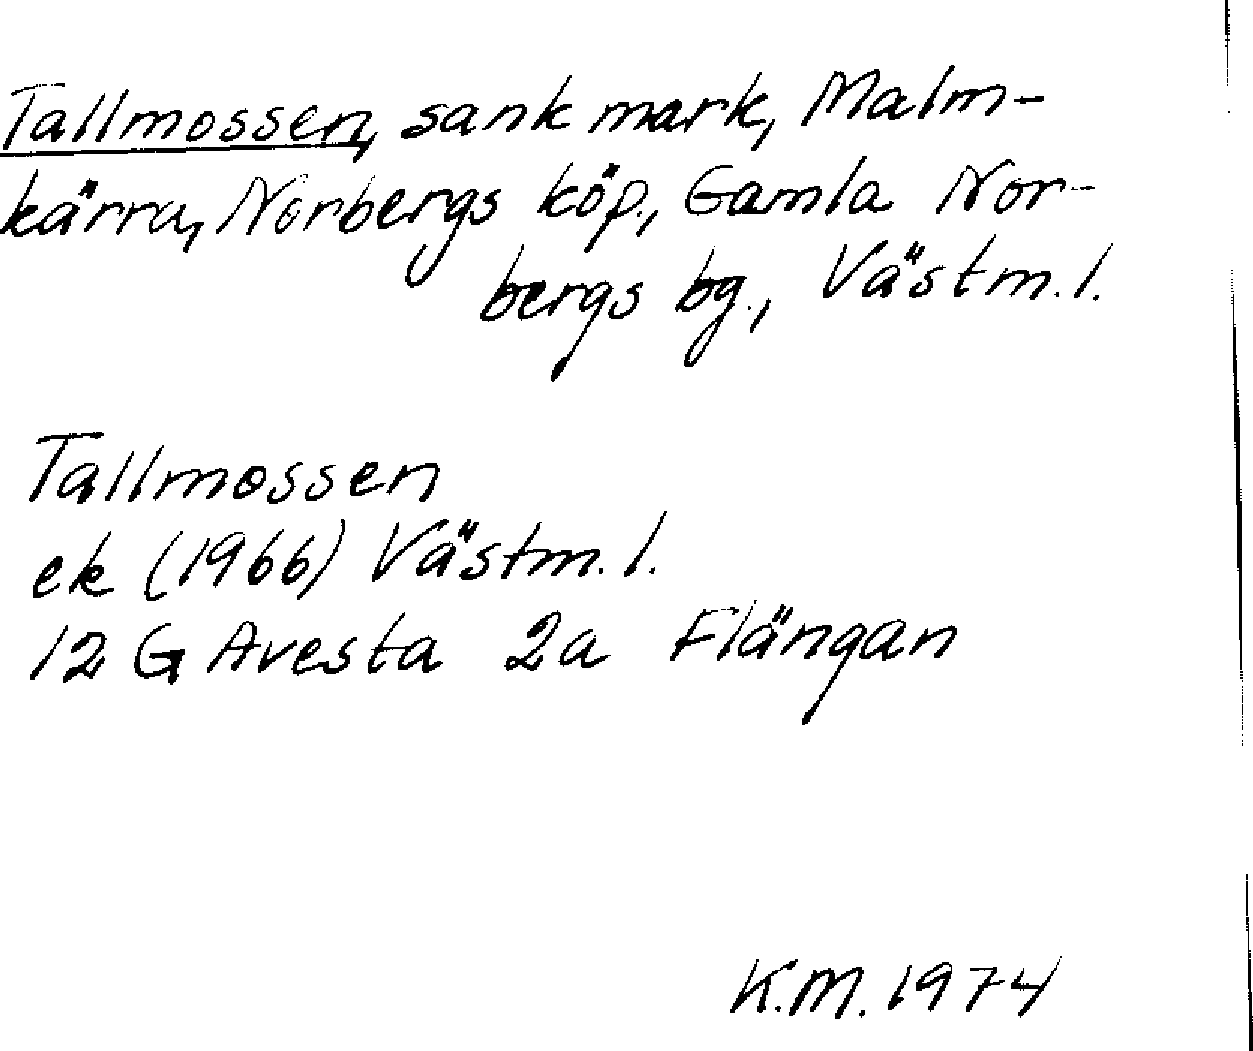 Tallmossen, sank mark, Malm-
kärra, Norbergs köp., Gamla Nor-
bergs bg., Västm. l.
Tallmossen
ek (1966) Västm. l.
12 G Avesta 2a Flängan
K.M. 1974